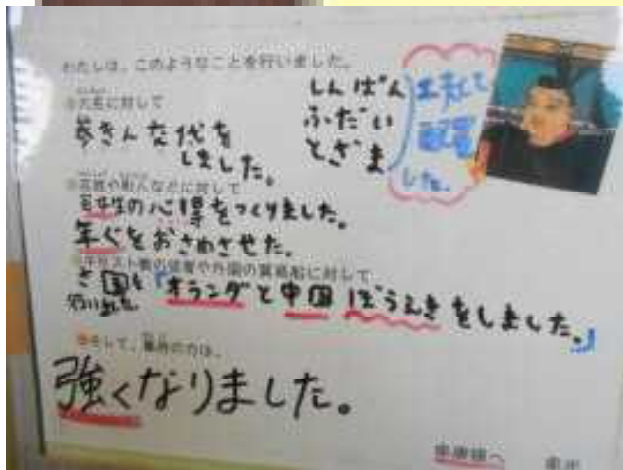 わたしは、このようなことを行いました。
①大名に対して
参きん交代を
しました。
しんぱん
ふだい
とざま
工夫して
配置
した。
②百姓や町人などに対して
百姓の心得をつくりました。
年ぐをおさめさせた。
③キリスト教の信者や外国の貿易船に対して
さ国を
行いました
「オランダと中国ぼうえきをしました。」
④そして、幕府の力は、
強くなりました。
家康様へ
家光